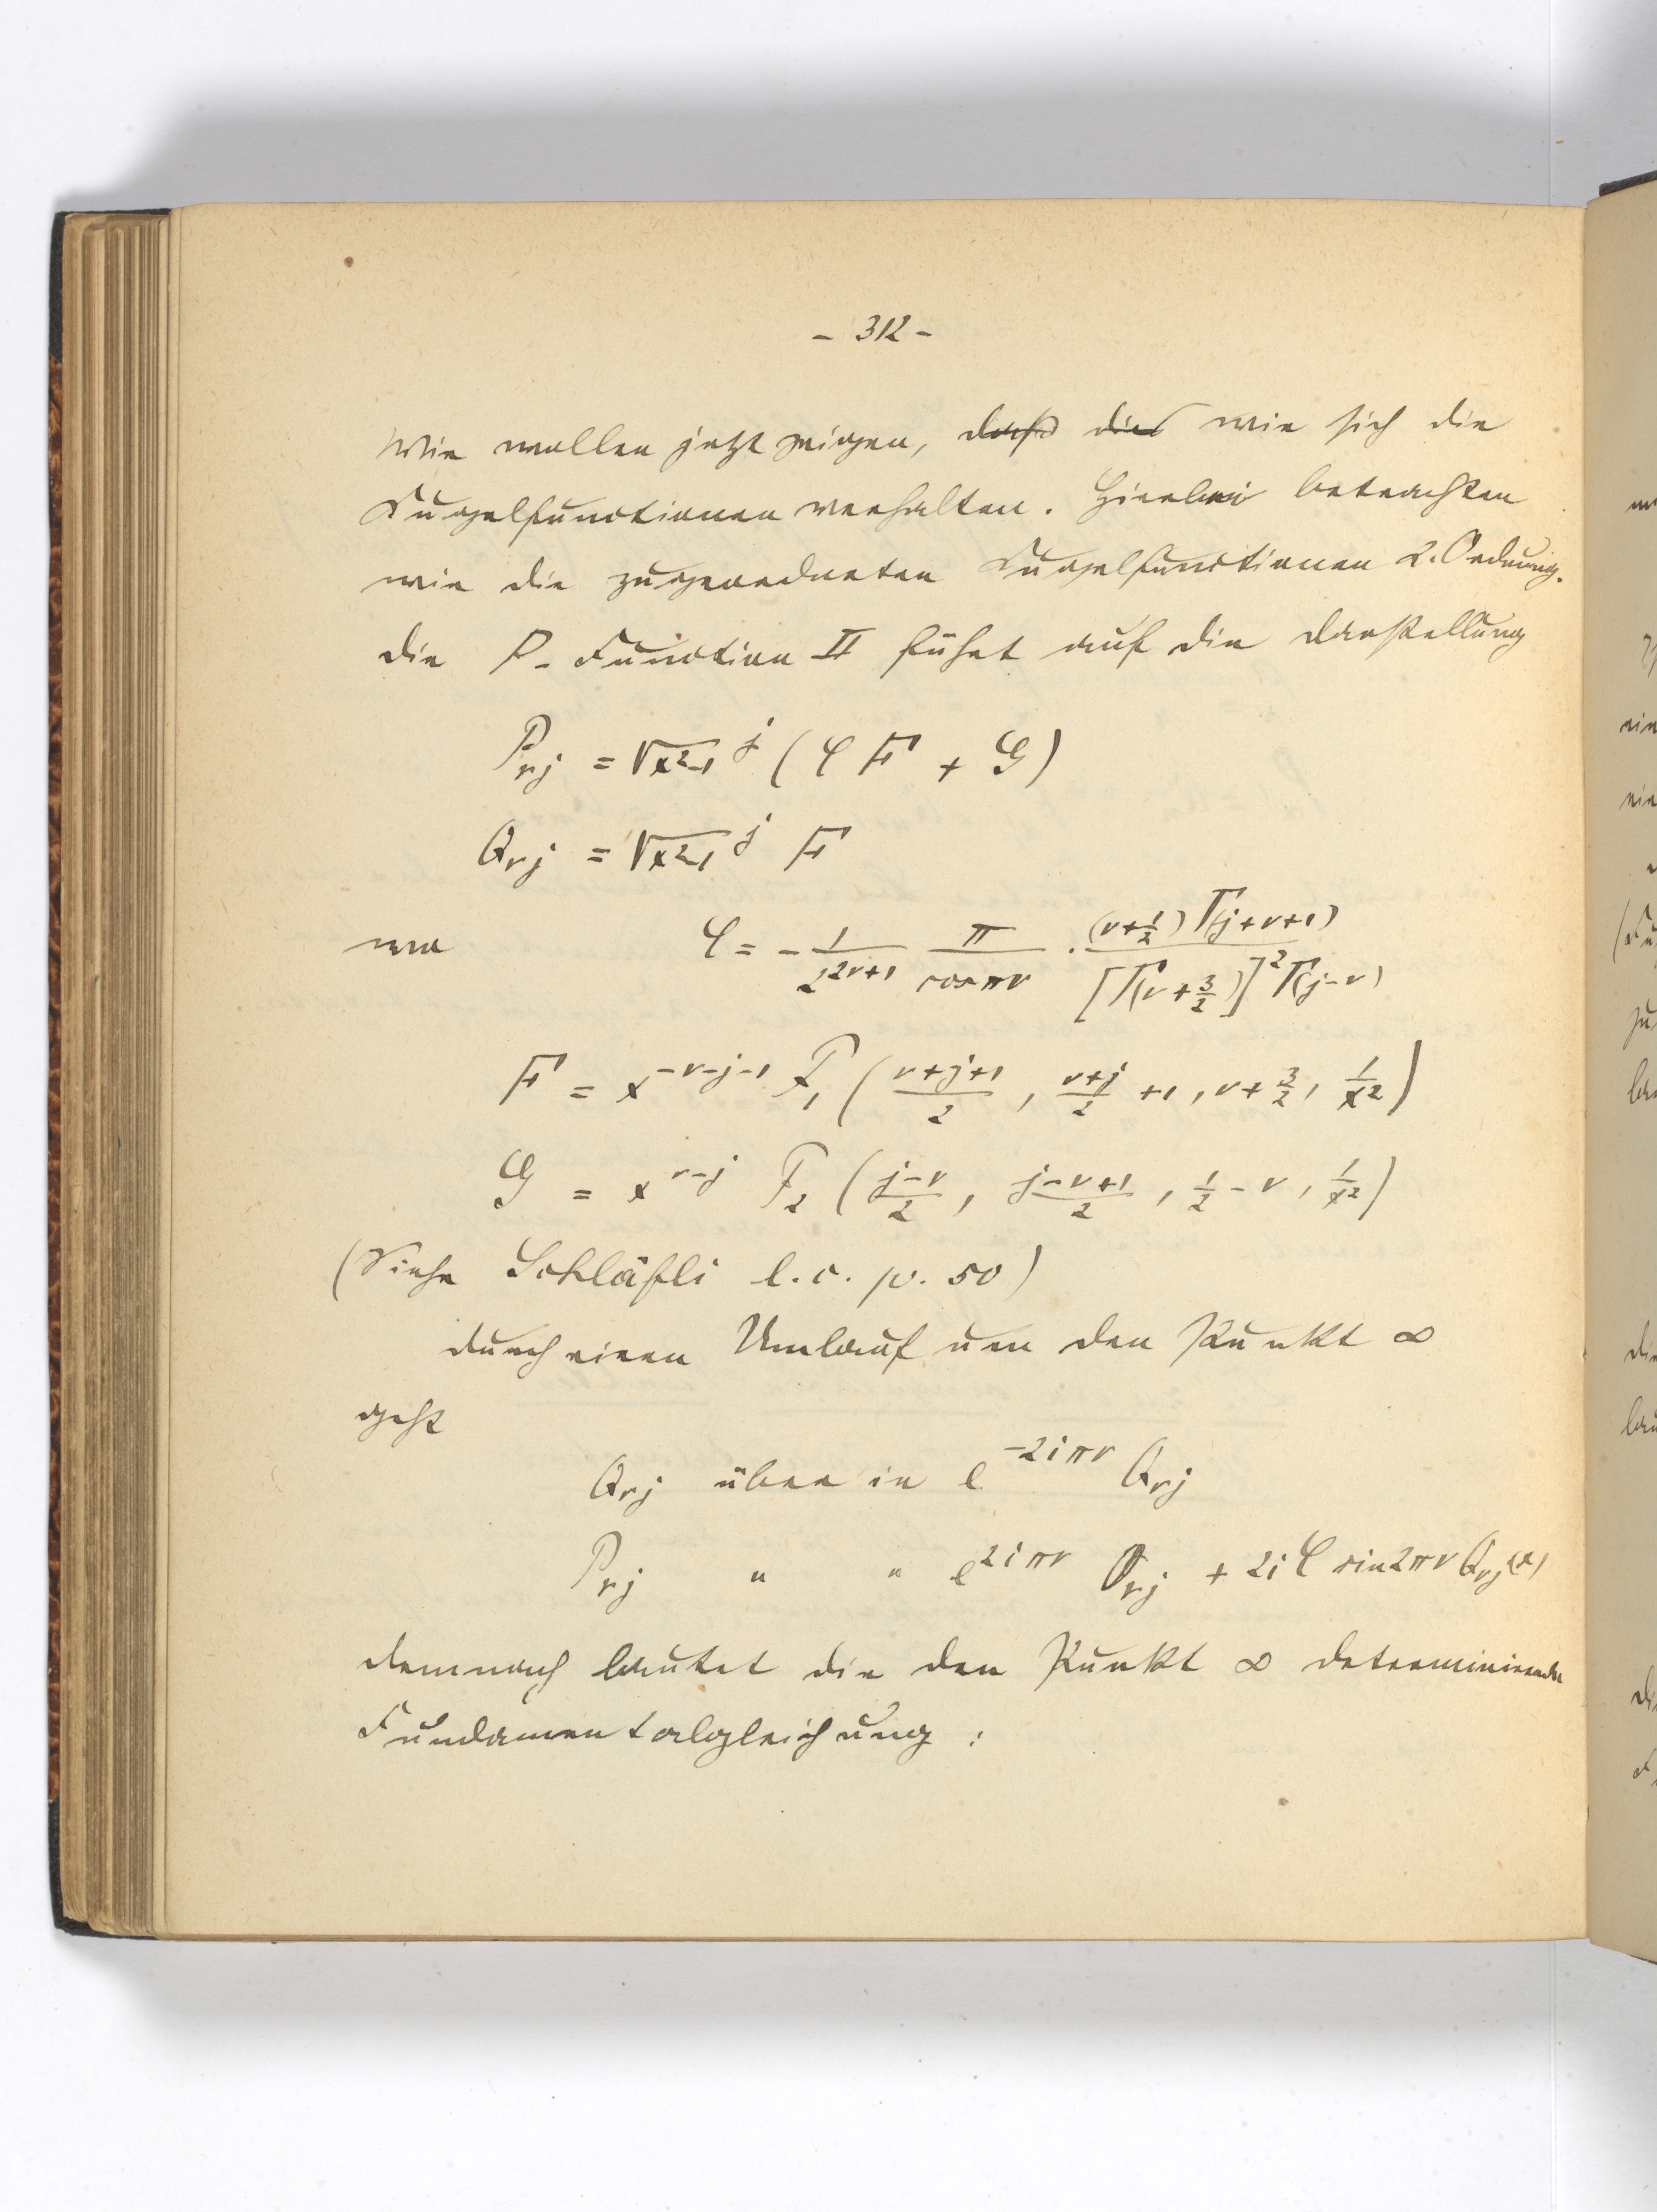 - 312 -
Wir wollen jetzt zeigen, dass dies wie sich die
Kugelfunctionen verhalten. Hierbei betrachten
wir die zugeordneten Kugelfunctionen 2. Ordnung.
die P-Function II führt auf die Darstellung
P_{νj} = √(x²-1)^j (φ F + G)
Q_{νj} = √(x²-1)^j F
wo φ = - 1/2^{2ν+1} π/cos πν · (ν+1/2) Γ(j+ν+1) / [Γ(ν+3/2)]² Γ(j-ν)
F = x^{-ν-j-1} F₁ ( (ν+j+1)/2 , (ν+j)/2 +1 , ν+3/2 , 1/x² )
G = x^{ν-j} F₂ ( (j-ν)/2 , (j-ν+1)/2 , 1/2-ν , 1/x² )
(Siehe Schläfli l.c. p. 50)
durch einen Umlauf um den Punkt ∞
geht
Q_{νj} über in e^{-2iπν} Q_{νj}
P_{νj} " " e^{2iπν} P_{νj} + 2i φ sin 2πν Q_{νj}(x)
demnach lautet die den Punkt ∞ determinirende
Fundamentalgleichung :